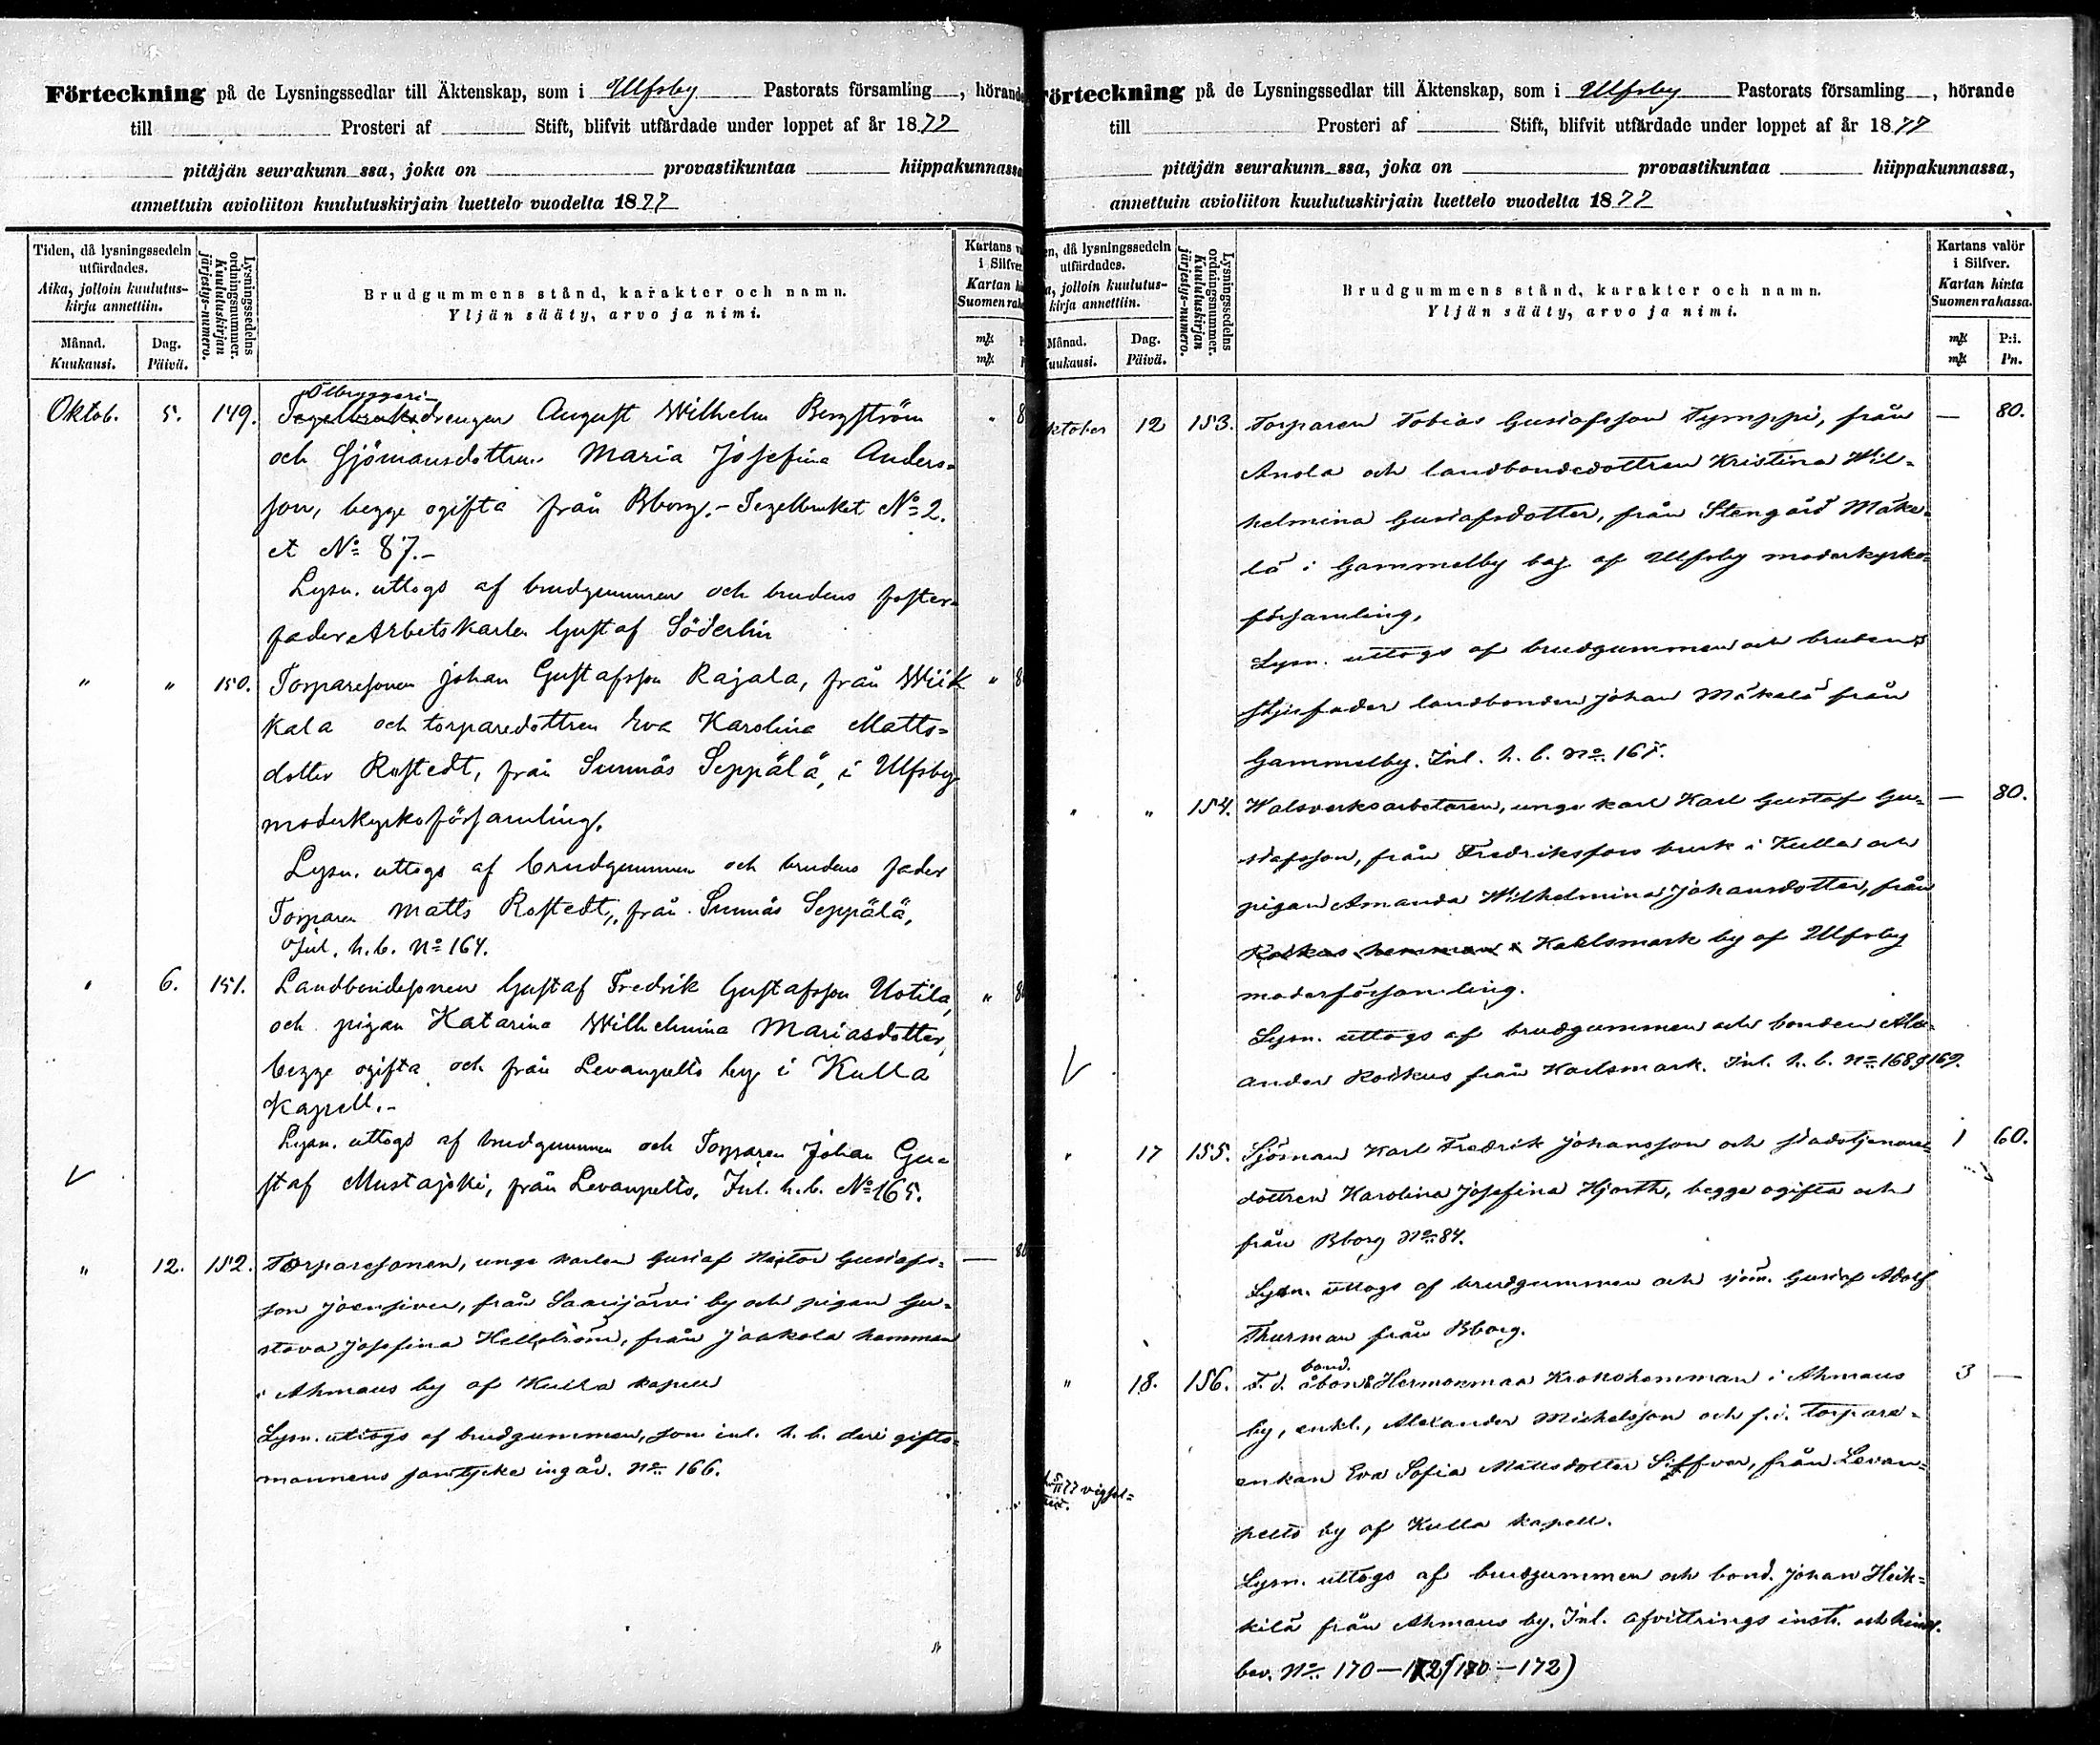 Förteckning på de Lysningssedlar till Äktenskap, som i Ulfsby Pastorats församling, hörande
till Prosteri af Stift, blifvit utfärdade under loppet af år 1877
pitäjän seurakunn ssa, joka on provastikuntaa hiippakunnassa
annettuin avioliiton kuulutuskirjain luettelo vuodelta 1877
Tiden, då lysningssedeln utfärdades.
Aika, jolloin kuulutus-
kirja annettiin.
Månad. Dag.
Kuukausi. Päivä.
Lysningssedelns ordningsnummer.
Kuulutuskirjan järjestys-numero.
Brudgummens stånd, karakter och namn.
Yljän sääty, arvo ja nimi.
Kartans
i Silfver
Kartan
Suomen
Oktob. 5. 149. Ölbryggeri-
Tegelbruksdrengen August Wilhelm Bergström " 8
och Sjömansdottren Maria Josefina Anders-
son, begge ogifta från Bborg.- Tegelbruket No 2.
et No 87.-
Lysn. uttogs af brudgummen och brudens foster-
fader Arbetskarlen Gustaf Söderlin
" " 150. Torparesonen Johan Gustafsson Rajala, från Wiik " 8
kala och torparedottren Eva Karolina Matts-
dotter Rostedt, från Sunnäs Seppälä, i Ulfsby
moderkyrkoförsamling.
Lysn. uttogs af brudgummen och brudens fader
Torparen Matts Rostedt, från Sunnäs Seppälä,
Inl. h.b. No 164.
" 6. 151. Landbondesonen Gustaf Fredrik Gustafsson Uotila, " 8
och pigan Katarina Wilhelmina Mariasdotter,
begge ogifta och från Levanpelto by i Kulla
Kapell.-
Lysn. uttogs af brudgummen och Torparen Johan Gu-
staf Mustajoki, från Levanpelto. Inl. h.b. No 165.
" 12. 152. Torparesonen, unge karlen Gustaf Hektor Gustafs- — 8
son Joensiven, från Saarijärvi by och pigan Gu-
stava Josefina Hellström, från Jaakola hemman
i Ahmaus by af Kulla kapell
Lysn. uttogs af brudgummen, som inl. h. b. deri gifto-
mannens samtycke ingår. No 166.
Förteckning på de Lysningssedlar till Äktenskap, som i Ulfsby Pastorats församling, hörande
till Prosteri af Stift, blifvit utfärdade under loppet af år 1877
pitäjän seurakunn ssa, joka on provastikuntaa hiippakunnassa,
annettuin avioliiton kuulutuskirjain luettelo vuodelta 1877
en, då lysningssedeln utfärdades.
a, jolloin kuulutus-
kirja annettiin.
Månad. Dag.
Kuukausi. Päivä.
Lysningssedelns ordningsnummer.
Kuulutuskirjan järjestys-numero.
Brudgummens stånd, karakter och namn.
Yljän sääty, arvo ja nimi.
Kartans valör
i Silfver.
Kartan hinta
Suomen rahassa.
P:i.
Pn.
ktober 12 153. Torparen Tobias Gustafsson Tymppi, från — 80.
Anola och landbondedottren Kristina Wil-
helmina Gustafsdotter, från Stengård Mäke-
lä i Gammelby by af Ulfsby moderkyrko-
församling.
Lysn. uttogs af brudgummen och brudens
styffader landbonden Johan Mäkelä från
Gammelby. Inl. h. b. No 167.
" " 154. Walsverksarbetaren, unge karl Karl Gustaf Gu- — 80.
stafsson, från Fredriksfors bruk i Kulla och
pigan Amanda Wilhelmina Johansdotter, från
Roikus hemman i Kahlsmark by af Ulfsby
moderförsamling.
Lysn. uttogs af brudgummen och bonden Alex-
ander Roikus från Karlsmark. Inl. h. b. No 168, 169.
" 17 155. Sjöman Karl Fredrik Johansson och stadstjenare- 1 60.
dottren Karolina Josefina Hjorth, begge ogifta och
från Bborg No 84.
Lysn. uttogs af brudgummen och sjöm. Gustaf Adolf
Thurman från Bborg.
bond.
" 18. 156. F. d. Hermonmaa Krono hemman i Ahmaus 3 —
by, enkl., Alexander Michelsson och f.d. torpare-
enkan Eva Sofia Mattsdotter Siffver, från Levan-
pelto by af Kulla kapell.
Lysn. uttogs af brudgummen och bond. Johan Heik-
kilä från Ahmaus by. Inl. afvittrings instr. och hind.
bev. No 170—172 (170—172)